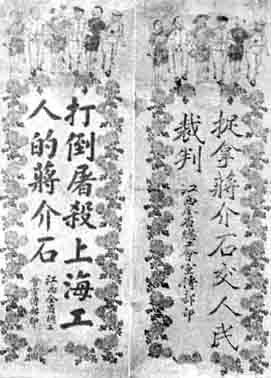 捉拿蔣介石交人民
裁判
江西全省總工會宣傳部印
打倒屠殺上海工
人的蔣介石
江西全省總工
會宣傳部印